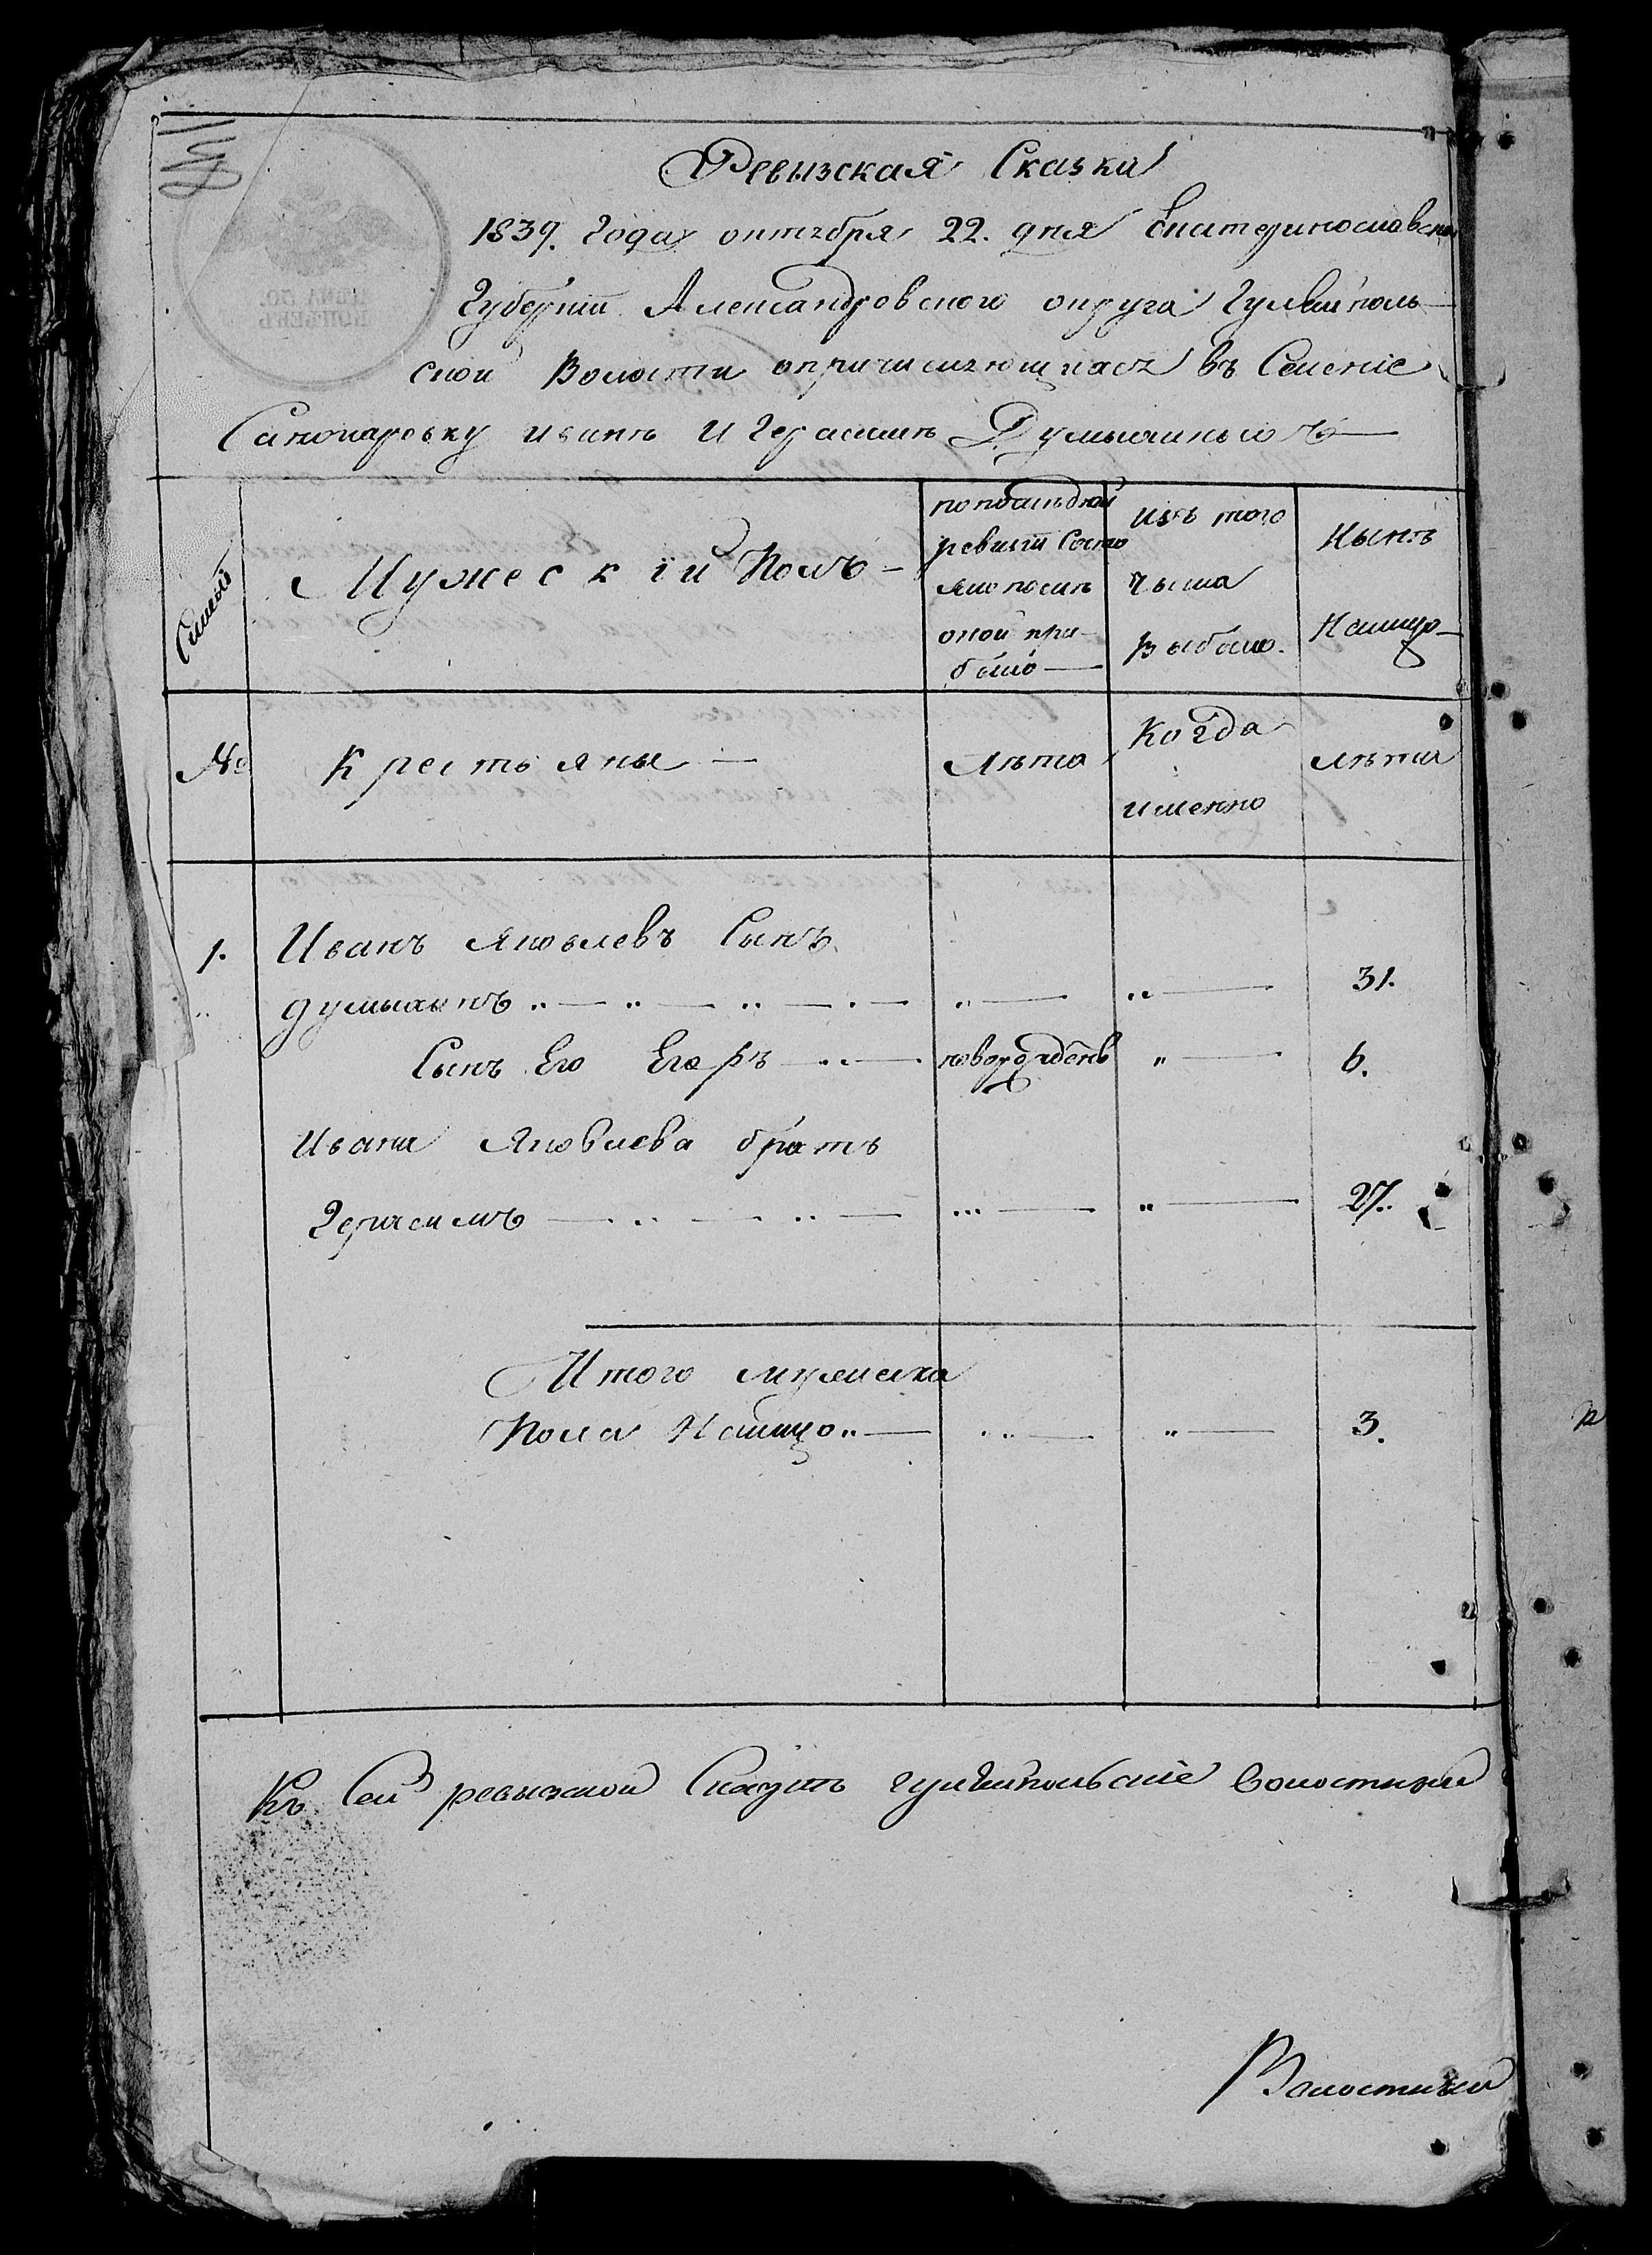 841
Ревызская Сказка
1839. года октебря 22. дня Екатеринославской
Губерніи Александровского округа Гуляйполь-
ской Волости опричисляющихся въ Селеніе
Санжаровку Иванъ и Герасимъ Думыхиныхъ
Семьи
Мужескій Полъ
по последней
ревизіи Состо
яло после
оной при-
было
Изъ того
числа
Выбыло.
Нынѣ
На лицо
№
Крестьяны
Лѣта
Когда
именно
Лѣта
1.
Иванъ Яковлевъ Сынъ
думыхинъ
31.
Сынъ Его Егоръ новорожденъ 6.
Ивана Яковлева братъ
Герасимъ 27.
Итого мужеска
Пола На лицо 3.
Къ Сей ревызкой Сказкѣ гуляйпольскіе волостныи
Волостныи